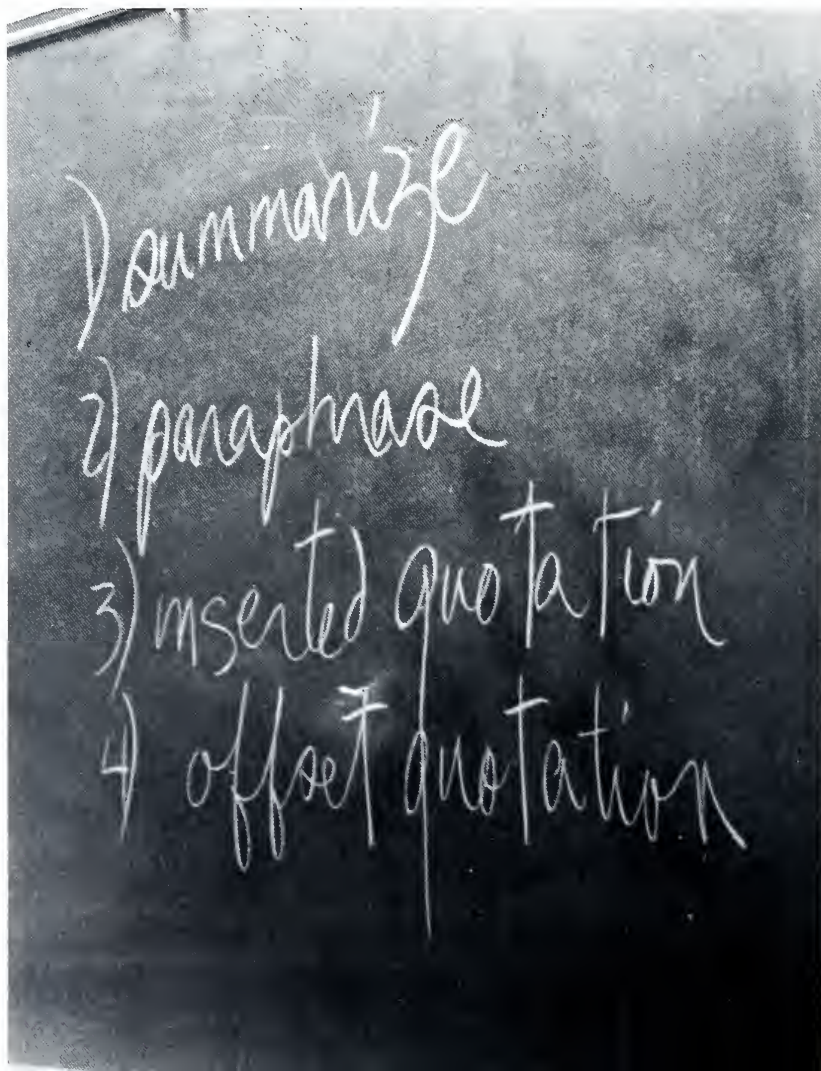 1) summarize
2) paraphrase
3) inserted quotation
4) offset quotation